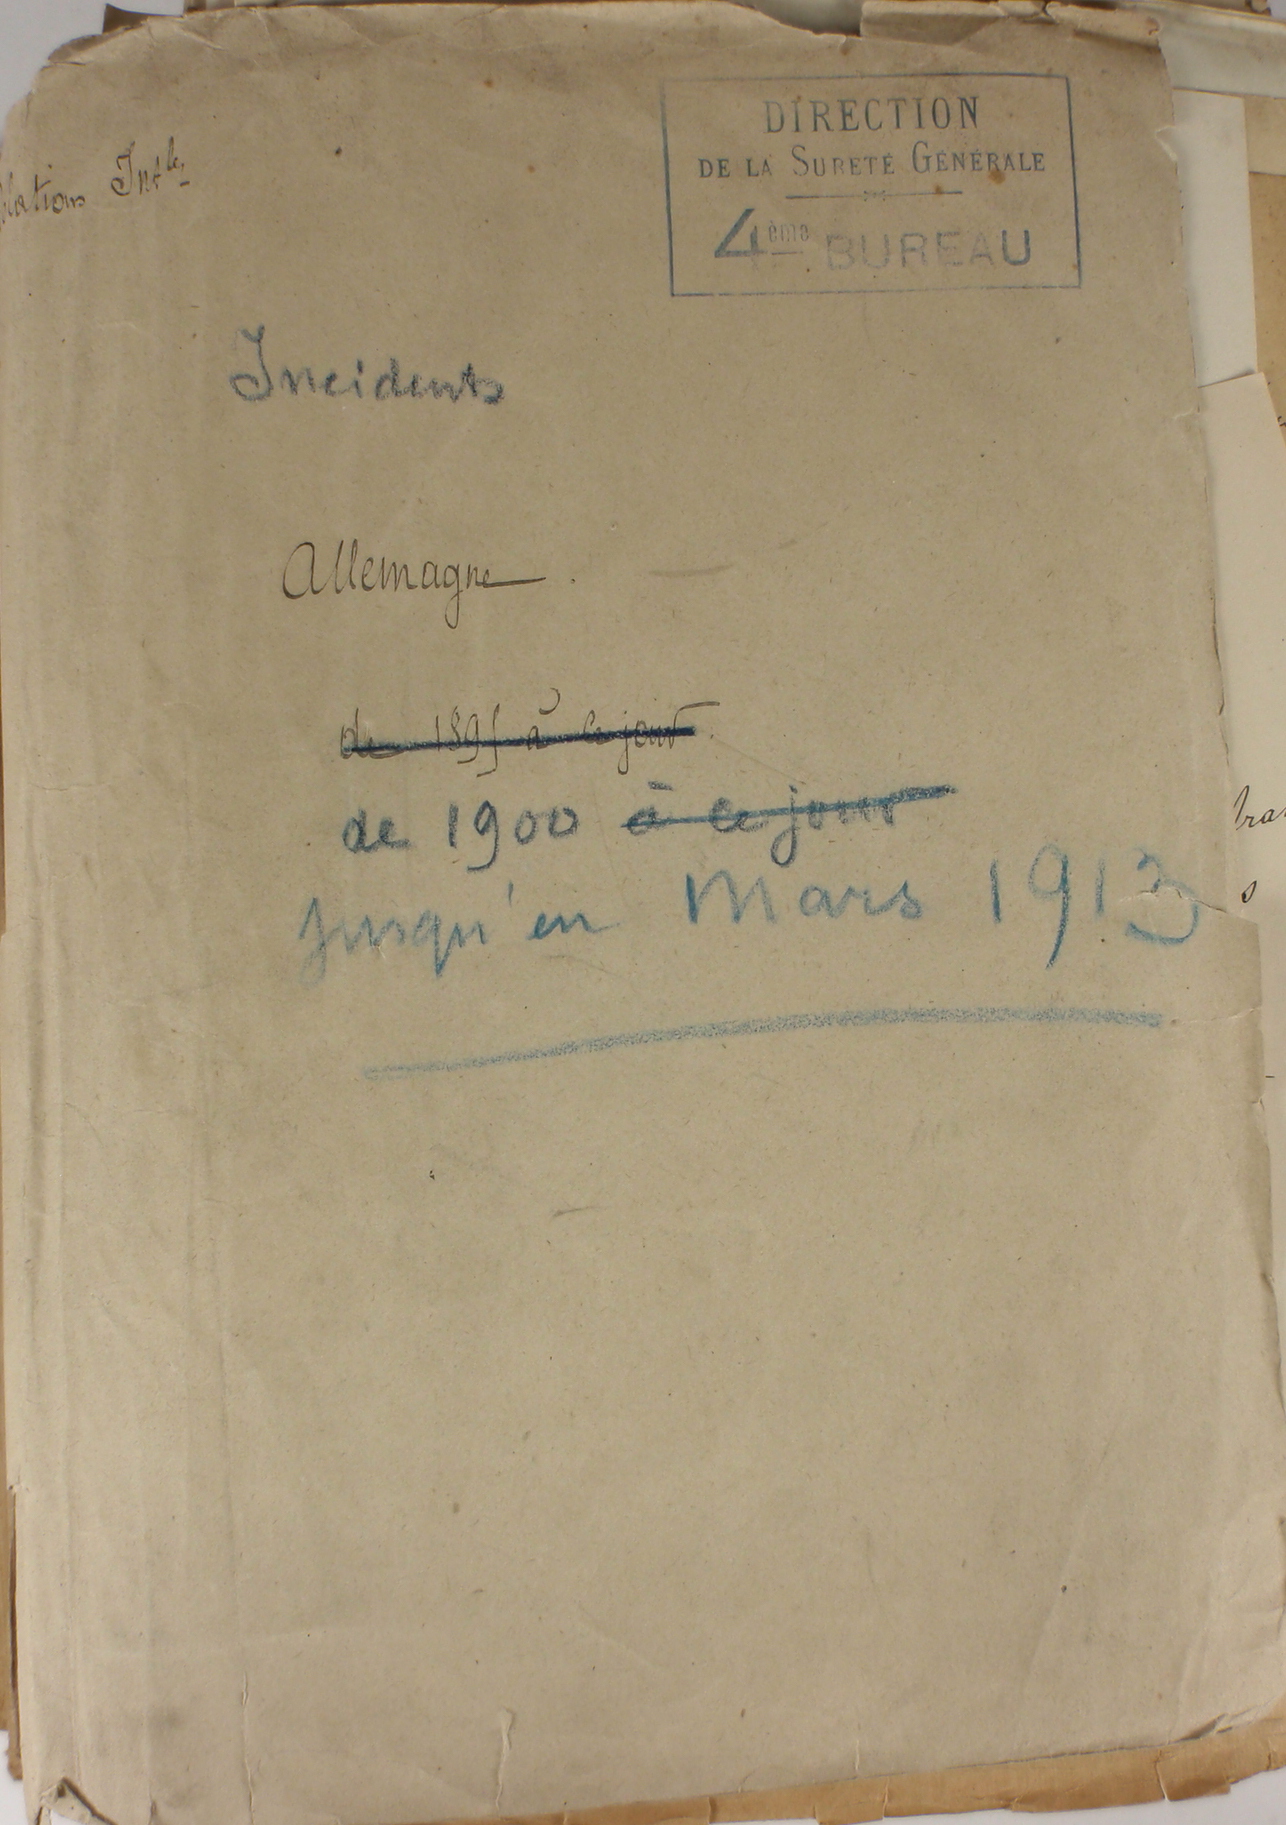 DIRECTION
DE LA SURETÉ GÉNÉRALE
4ème BUREAU
lations Intles
Incidents
Allemagne.
de 1895 à ce jour.
de 1900 à ce jour
jusqu'en Mars 1913